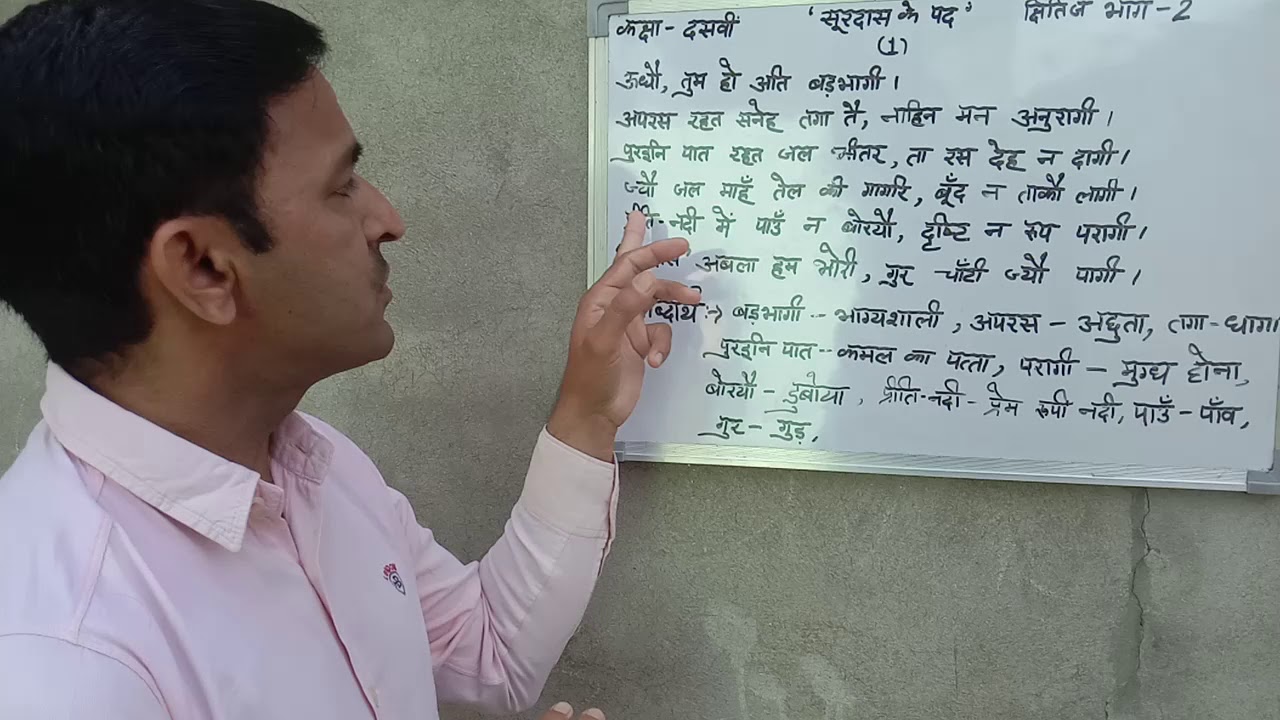 कक्षा - दसवीं 'सूरदास के पद' क्षितिज भाग - 2
(1)
ऊधौ, तुम हो अति बड़भागी।
अपरस रहत सनेह तगा तै, नाहिन मन अनुरागी।
पुरइनि पात रहत जल भीतर, ता रस देह न दागी।
ज्यौं जल माहँ तेल की गागरि, बूँद न ताकौं लागी।
नदी में पाउँ न बोरयौ, दृष्टि न रूप परागी।
अबला हम भोरी, गुर चाँटी ज्यौं पागी।
बड़भागी - भाग्यशाली, अपरस - अछुता, तगा - धागा
पुरइनि पात - कमल का पत्ता, परागी - मुग्ध होना,
बोरयौ - डुबोया, प्रीति-नदी - प्रेम रूपी नदी, पाउँ - पाँव,
गुर - गुड़,